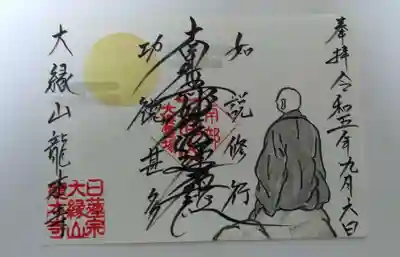 奉拝 令和五年九月六日
如説修行
南無妙法蓮華経
功徳甚多
大縁山龍本寺
日蓮宗
大縁山